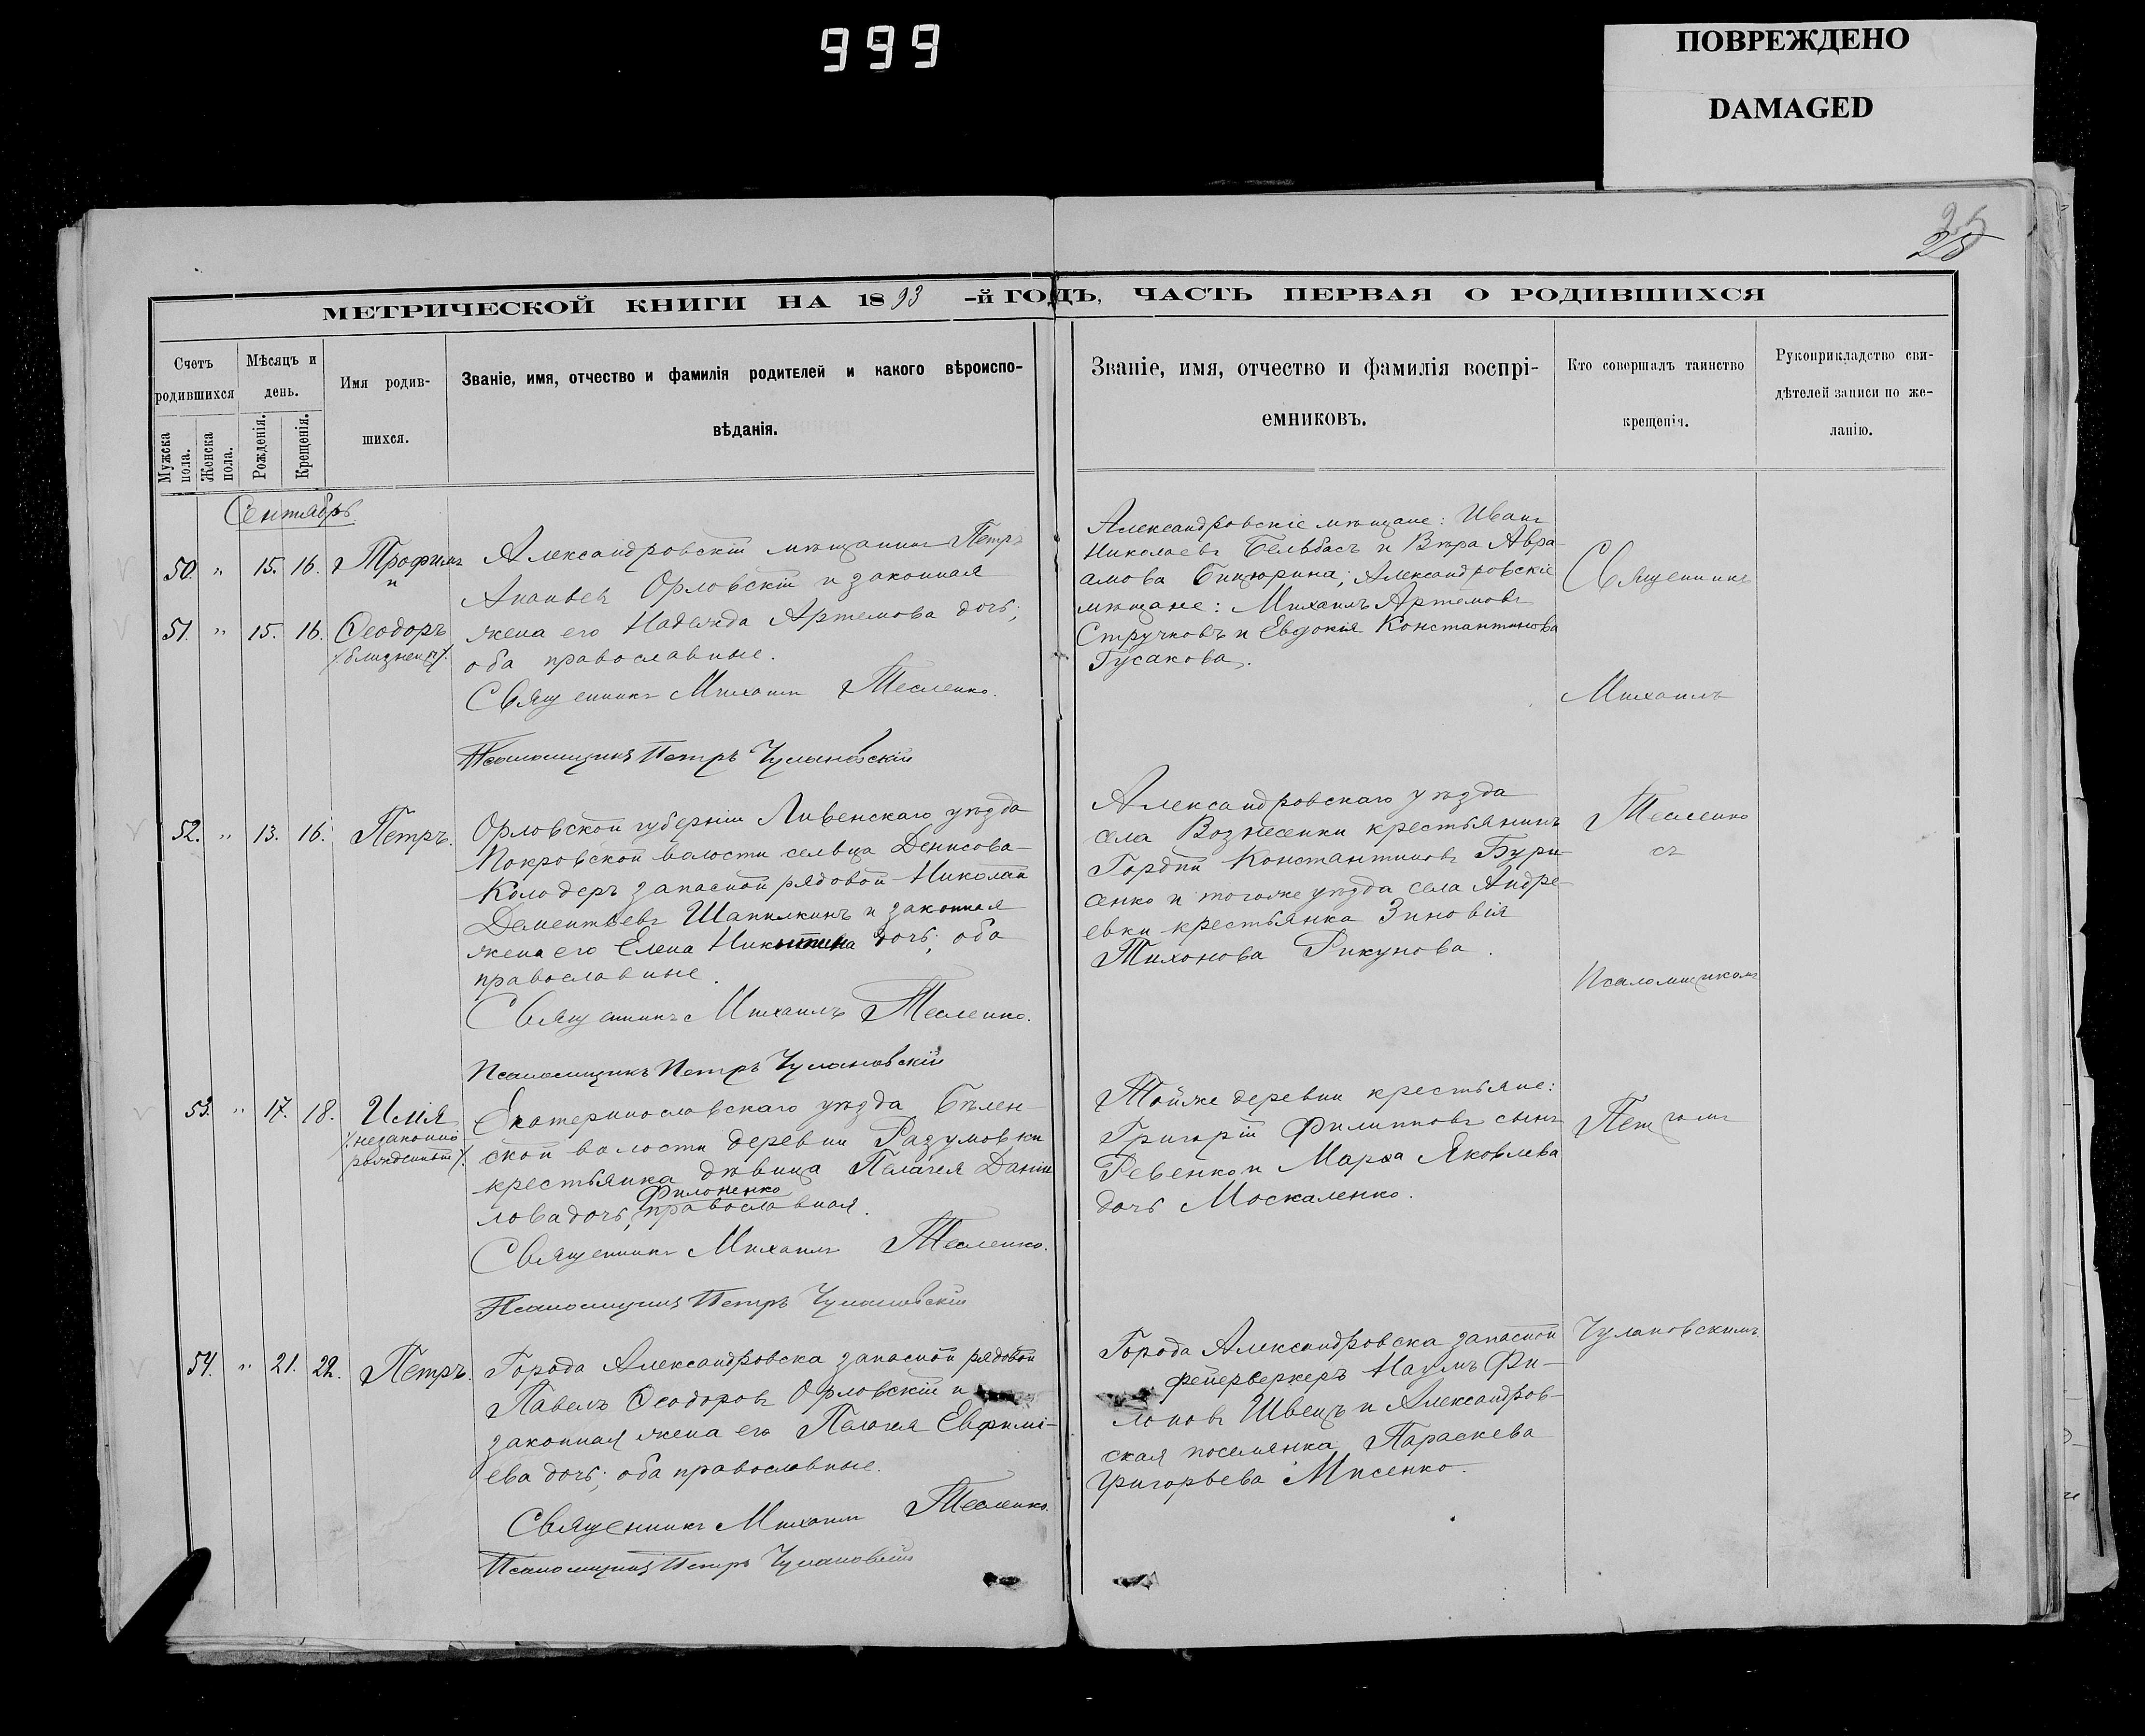 999
ПОВРЕЖДЕНО
DAMAGED
25
25
МЕТРИЧЕСКОЙ КНИГИ НА 1893 -й ГОДЪ, ЧАСТЬ ПЕРВАЯ О РОДИВШИХСЯ
Счетъ родившихся
Мужска пола.
Женска пола.
Мѣсяцъ и день.
Рожденія.
Крещенія.
Имя родив-
шихся.
Званіе, имя, отчество и фамилія родителей и какого вѣроиспо-
вѣданія.
Званіе, имя, отчество и фамилія воспрі-
емниковъ.
Кто совершалъ таинство
крещенія.
Рукоприкладство сви-
дѣтелей записи по же-
ланію.
Сентябрь
50. " 15. 16. Трофимъ
и
51. " 15. 16. Ѳеодоръ
/близнецы/.
Александровскій мѣщанинъ Петръ
Орловскій и законная
жена его Надежда Артемова дочь;
оба православные.
Священникъ Михаилъ Тесленко.
Псаломщикъ Петръ Чулановскій
Александровскіе мѣщане: Иванъ
Николаевъ Бельбасъ и Вѣра Авра-
амова Бицюрина; Александровскіе
мѣщане: Михаилъ Артемовъ
Стручковъ и Евдокія Константинова
Гусакова.
52. " 13. 16. Петръ.
Орловской губерніи Ливенскаго уѣзда
Покровской волости сельца Денисова-
Колодезь запасной рядовой Николай
Дементьевъ Шапилкинъ и законная
жена его Елена Никитина дочь; оба
православные.
Священникъ Михаилъ Тесленко.
Псаломщикъ Петръ Чулановскій
Александровскаго уѣзда
села Вознесенки крестьянинъ
Гордій Константиновъ Бури-
сенко и тогоже уѣзда села Андре-
евки крестьянка Зиновія
Тихонова Рикунова.
53. " 17. 18. Илія
/незаконно
рожденный/.
Екатеринославскаго уѣзда Бѣлен-
ской волости деревни Разумовки
крестьянка дѣвица Пелагея Даніи-
Филоненко
лова дочь, православная.
Священникъ Михаилъ Тесленко.
Псаломщикъ Петръ Чулановскій
Тойже деревни крестьяне:
Григорій Филипповъ сынъ
Ревенко и Марѳа Яковлева
дочь Москаленко.
54. " 21. 22. Петръ.
Города Александровска запасной рядовой
Павелъ Ѳеодоровъ Орловскій и
законная жена его Пелагея Евфимі-
ева дочь; оба православные.
Священникъ Михаилъ Тесленко.
Псаломщикъ Петръ Чулановскій
Города Александровска запасной
фейерверкеръ Наумъ Фи-
лоновъ Швецъ и Александров-
ская поселянка Параскева
Григорьева Мисенко.
Священникъ
Михаилъ
Тесленко
съ
Псаломщикомъ
Петромъ
Чулановскимъ